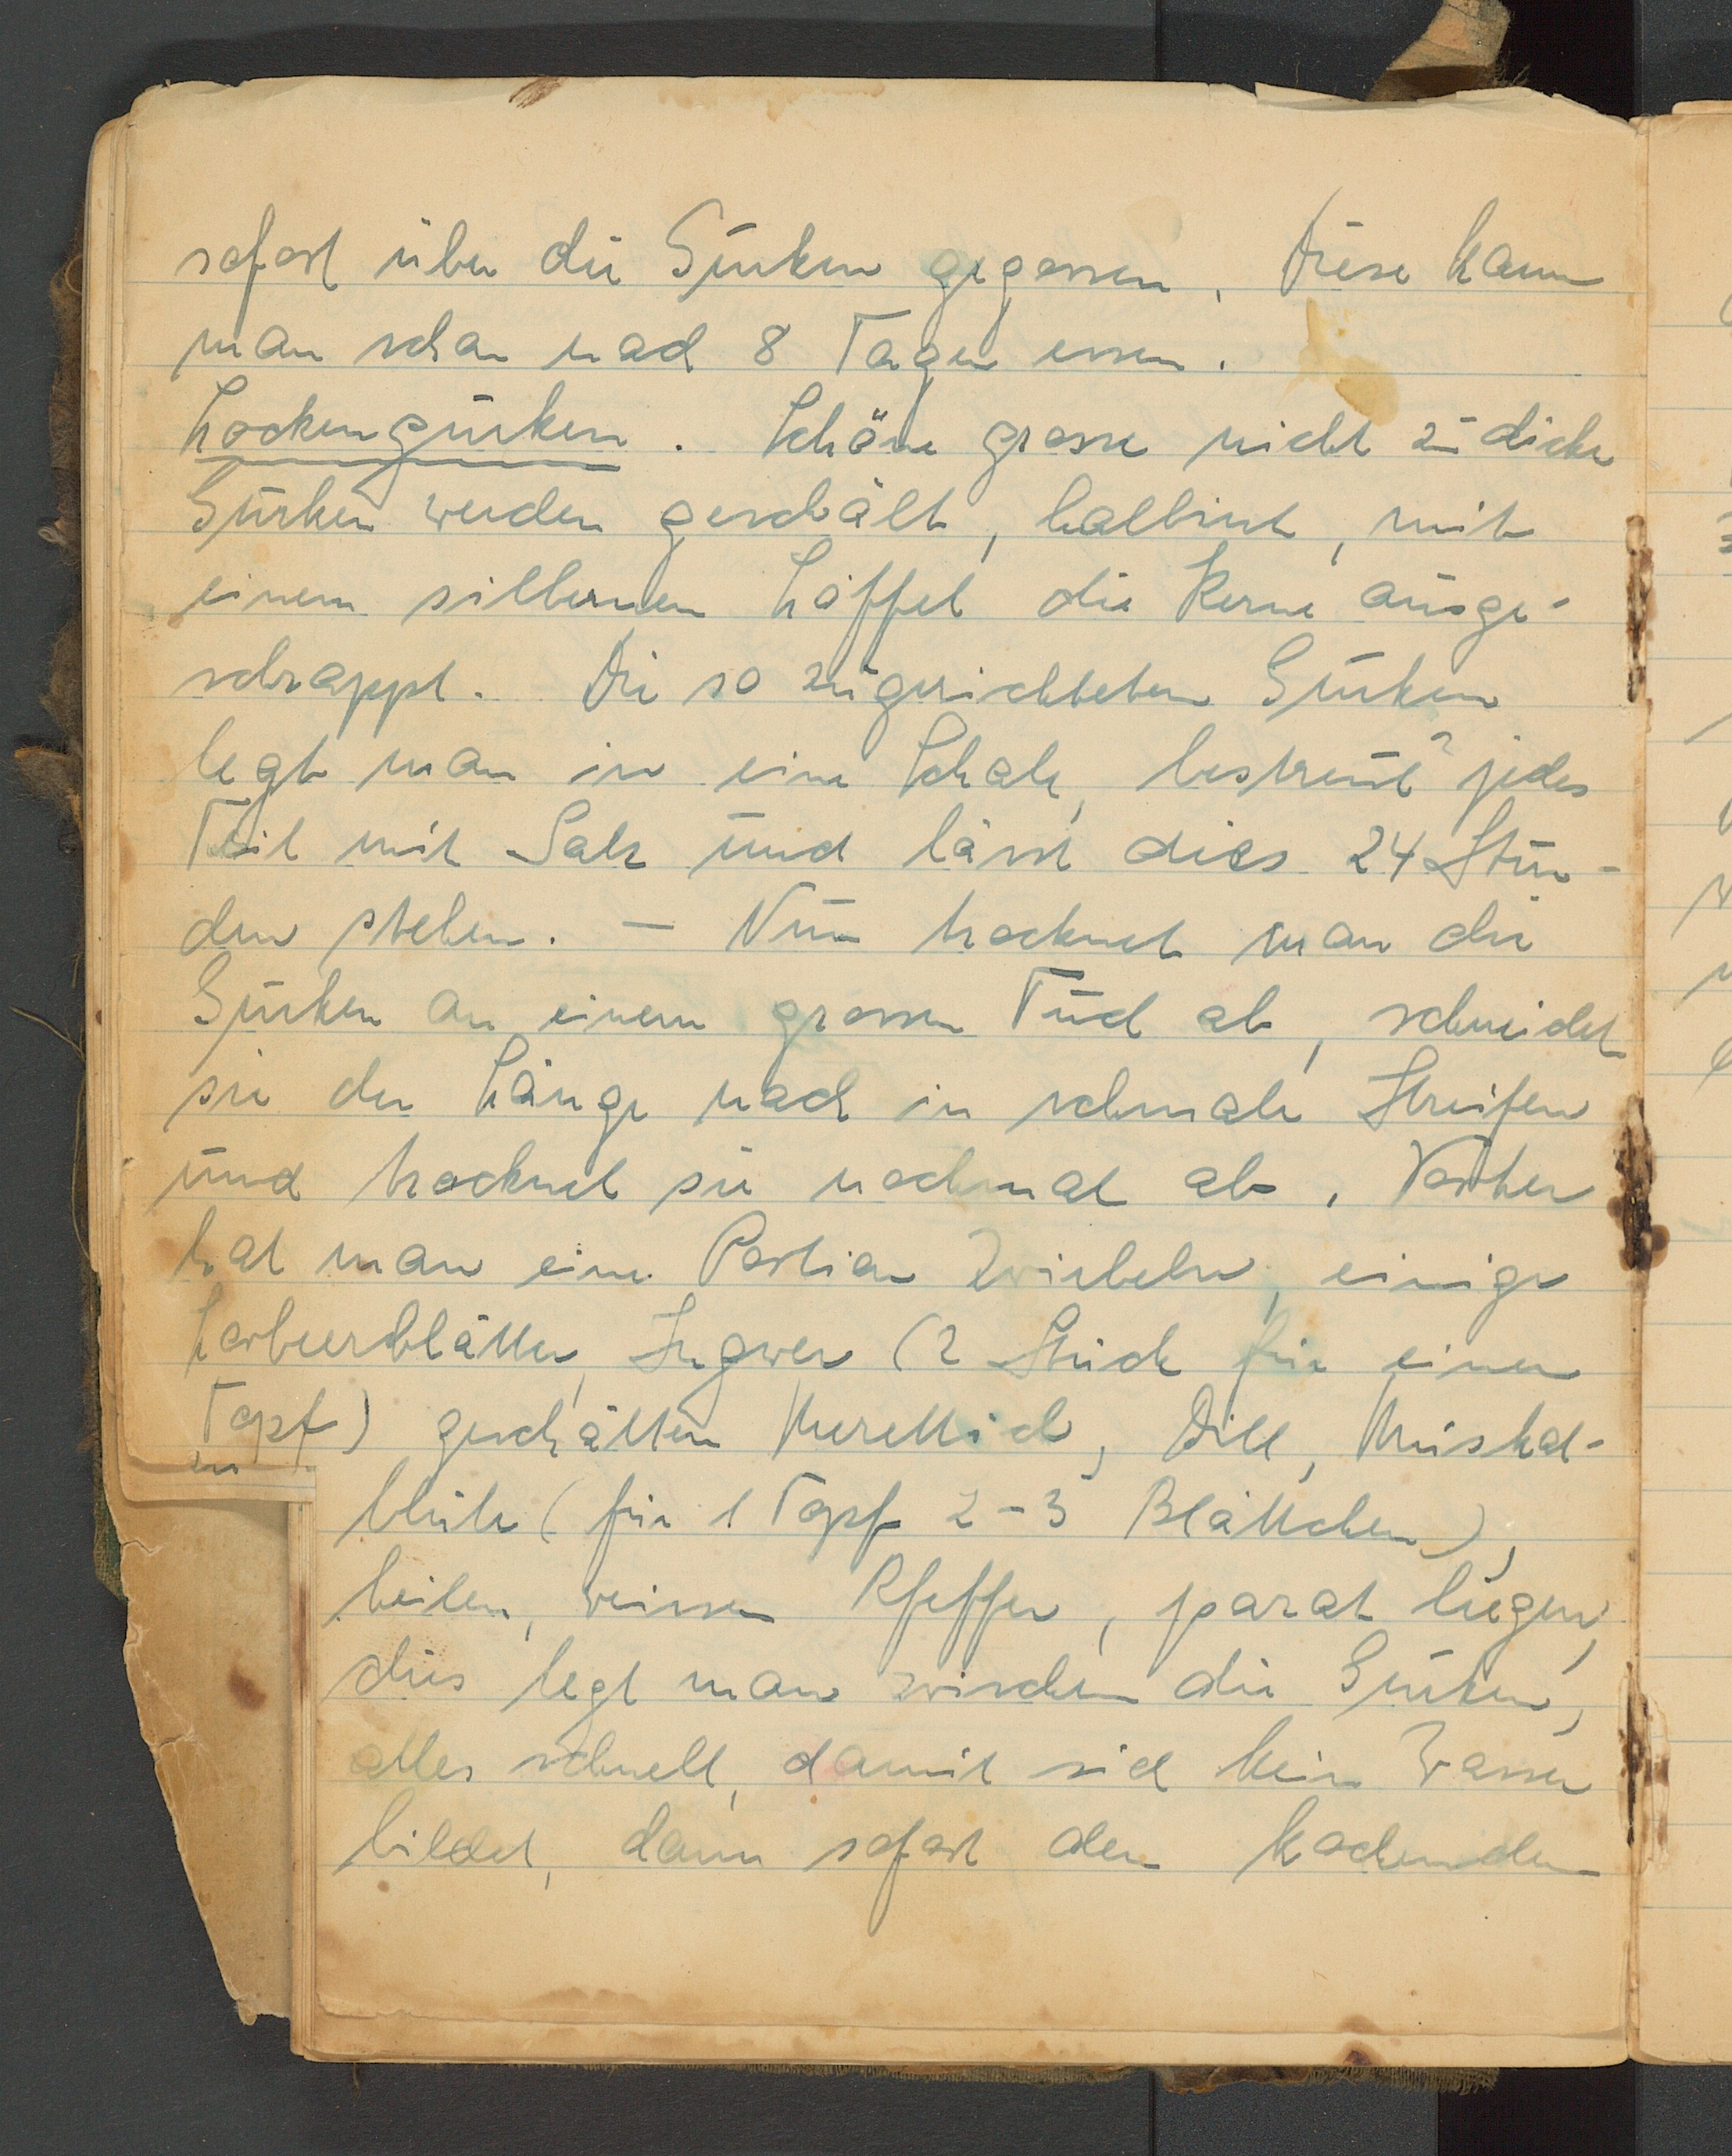 sofort über die Gurken gegossen. Diese kann
man schon nach 8 Tagen essen.
Lockengurken. Schöne grosse nicht zu dicke
Gurken werden geschält, halbiert, mit
einem silbernen Löffel die Kerne ausge-
schrappt. Die so zugerichteten Gurken
legt man in eine Schale, bestreut jedes
Teil mit Salz und lässt dies 24 Stun-
den stehen. — Nun trocknet man die
Gurken an einem grossen Tuch ab, schneidet
sie der Länge nach in schmale Streifen
und trocknet sie nochmal ab. Vorher
hat man eine Portion Zwiebeln, einige
Lorbeerblätter, Ingwer (2 Stück für einen
Topf) geschälten Merettich, Dill, Muskat-
blüte (für 1 Topf 2-3 Blättchen),
heilen, weissen Pfeffer, parat liegen,
dies legt man zwischen die Gurken,
alles schnell, damit sich kein Wasser
bildet, dann sofort den kochenden